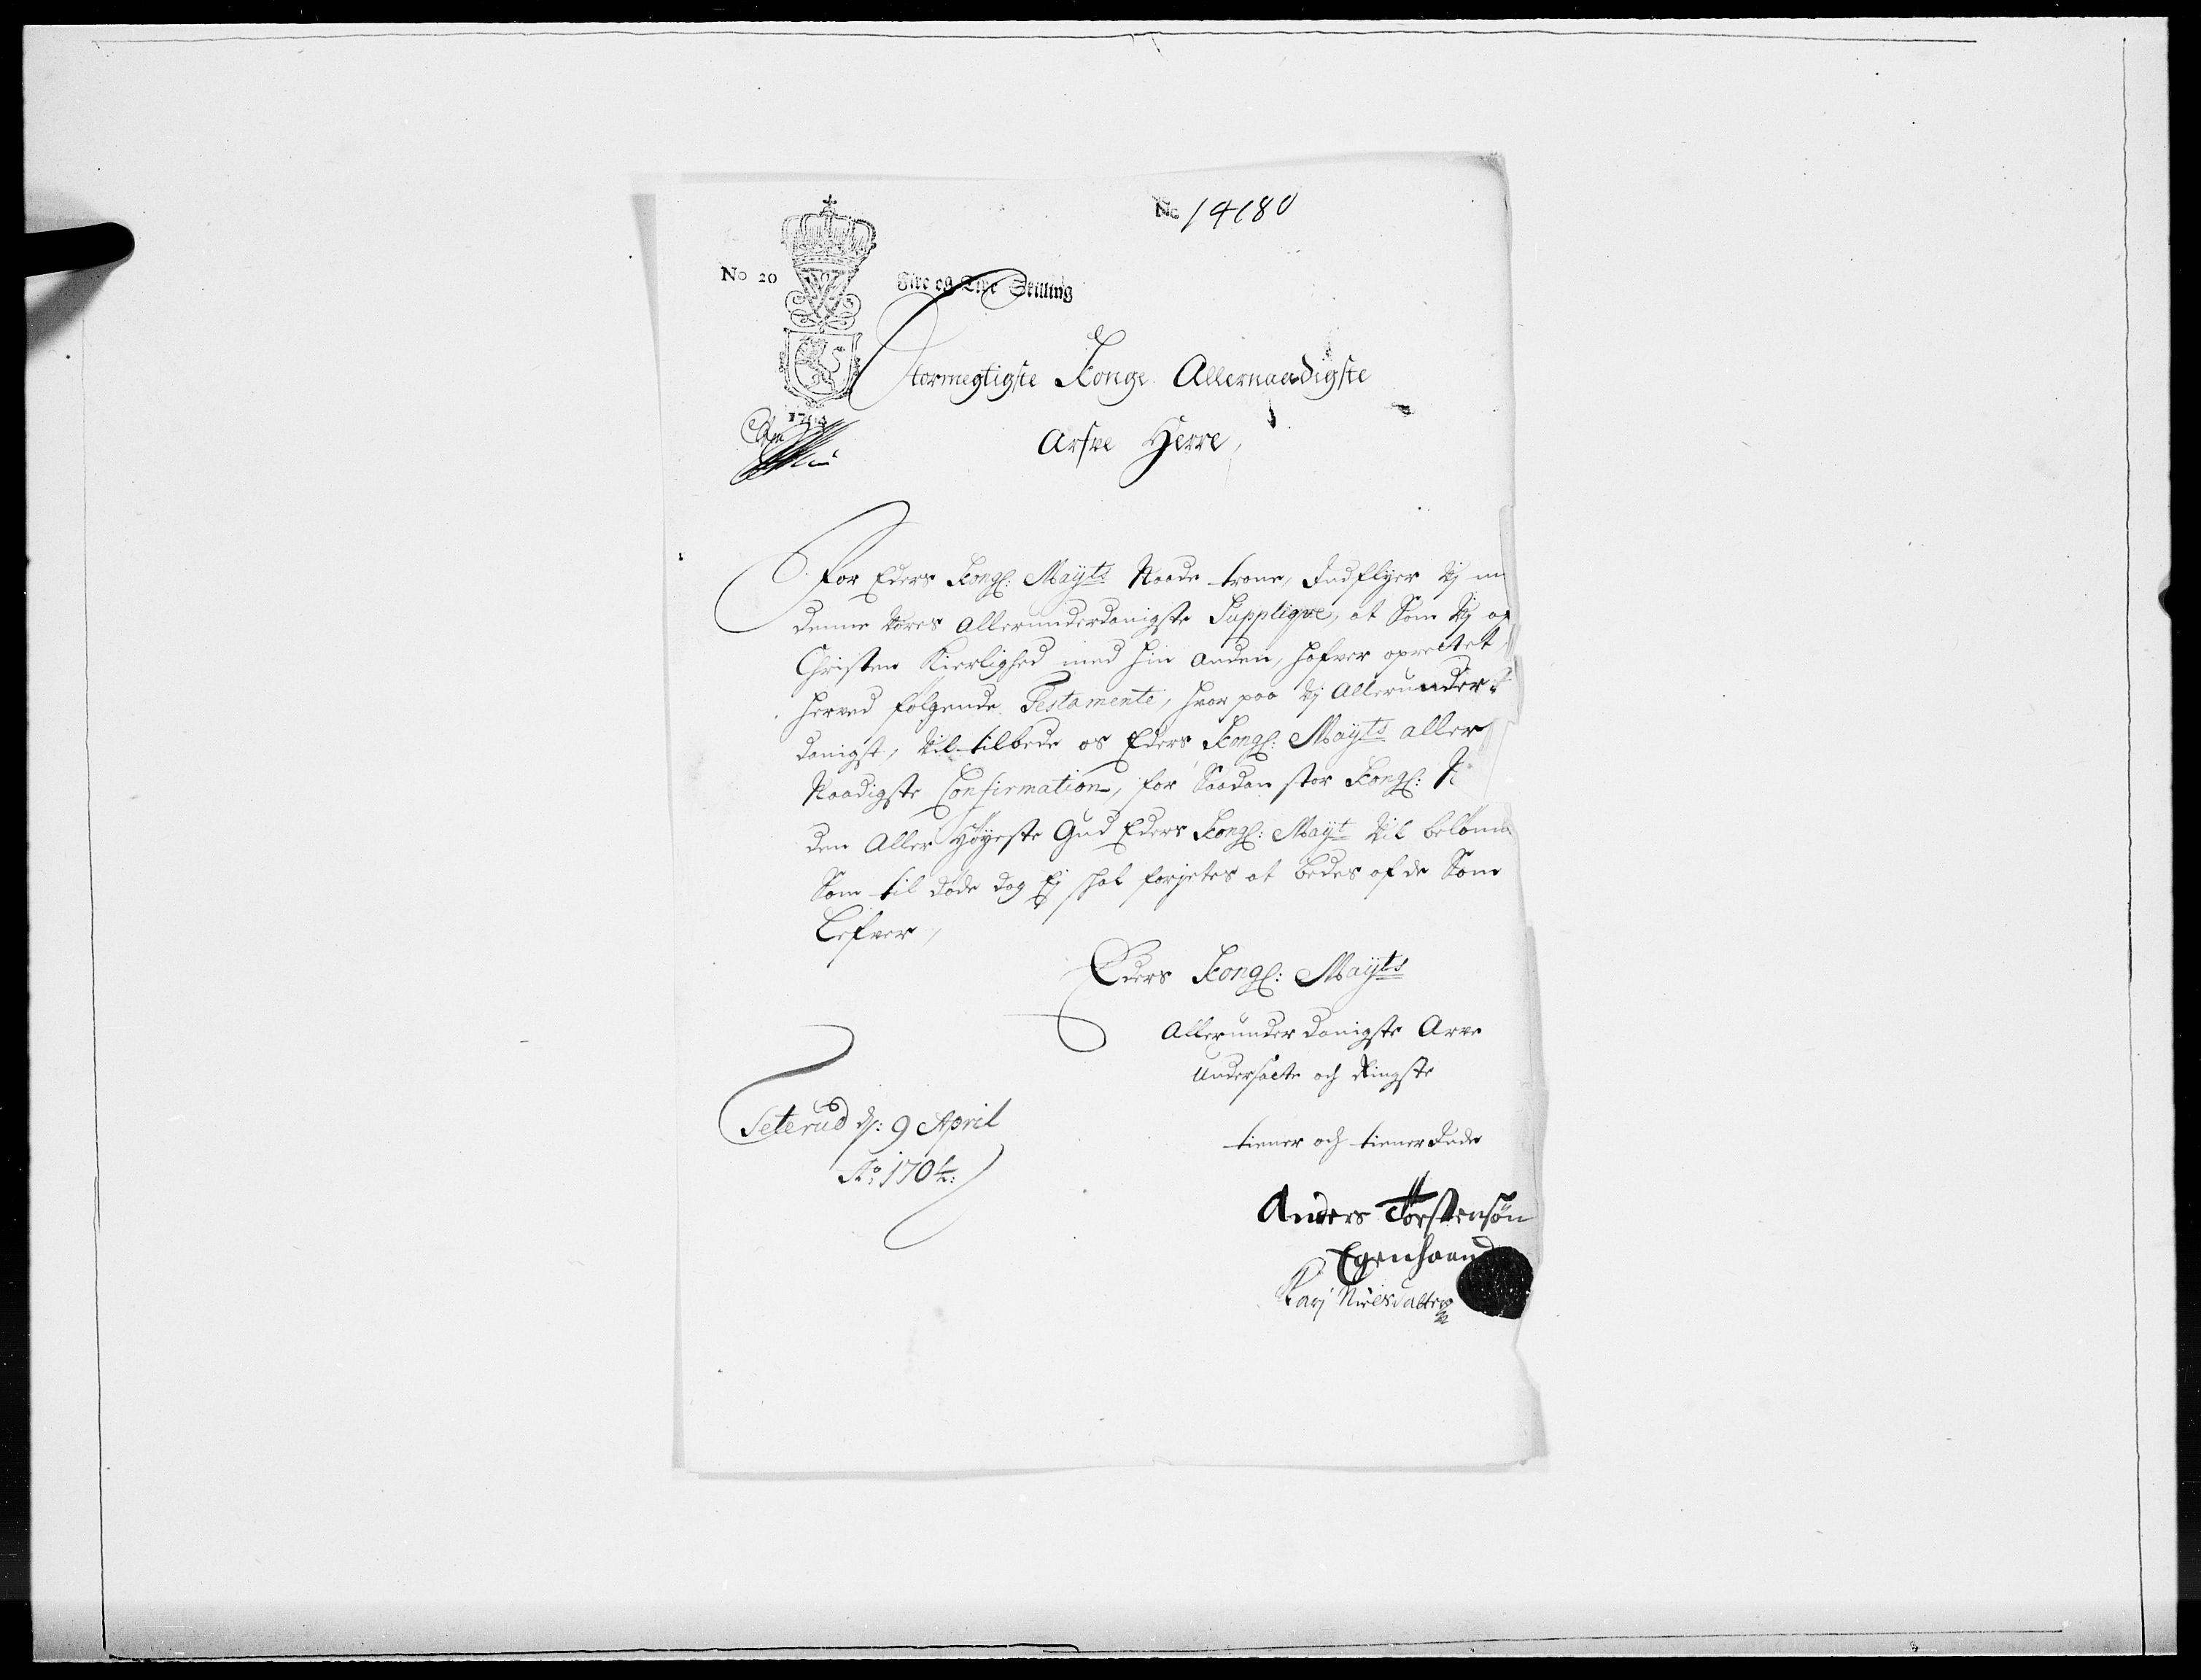 No 14180
No 20
Fire og Tive Skilling
Stormegtigste Konge Allernaadigste
Arfve Herre,
For Eders Kongl: Mayts Naade trone, Indflyer Vj m
denne Vores Allerunderdanigste Supplique, at Som Vj af
Christen Kierlighed med hin anden, hafver oprettet
herved følgende Testamente, hvor paa Vj Allerunder:
danigst, Vil tilbede os Eders Kongl: Mayts aller
Naadigste Confirmation, for Saadan stor Kongl: N
den Aller Høyeste Gud Eders Kongl: Mayt Vil belønne
Som til døde dag Ej skal forgetes at bedes af de Som
Lefver,
Eders Kongl: Mayts
Allerunderdanigste Arve
Undersatte och Ringste
tiener och tienerinde
Seterud d: 9 April
Ao 1704:
Anders Torstensøn
Egenhaand
Karj Nielsdatter